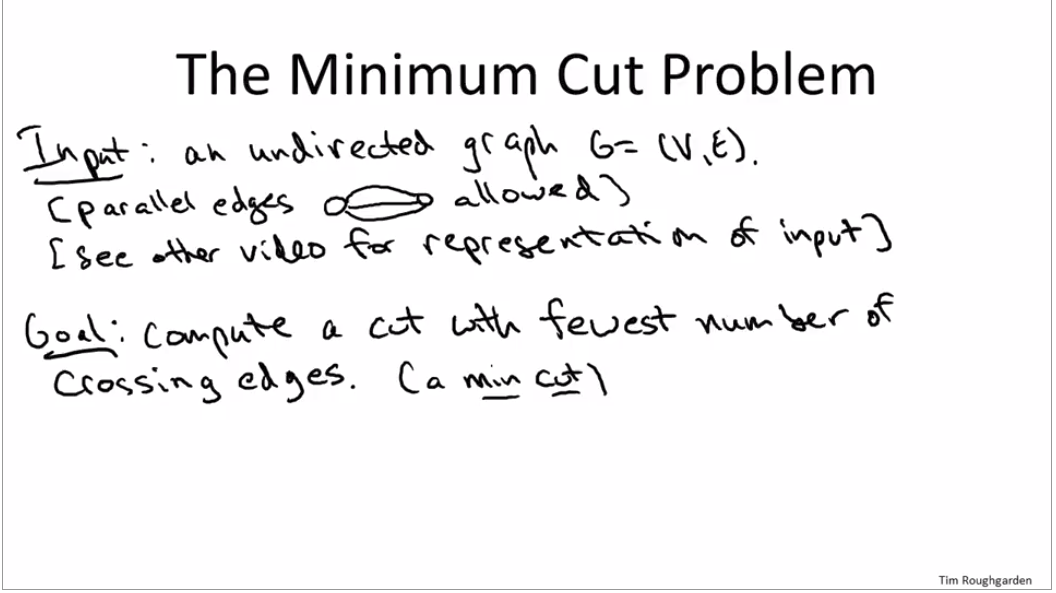 The Minimum Cut Problem
Input: an undirected graph G= (V,E).
[parallel edges allowed]
[see other video for representation of input]
Goal: compute a cut with fewest number of
crossing edges. (a min cut)
Tim Roughgarden